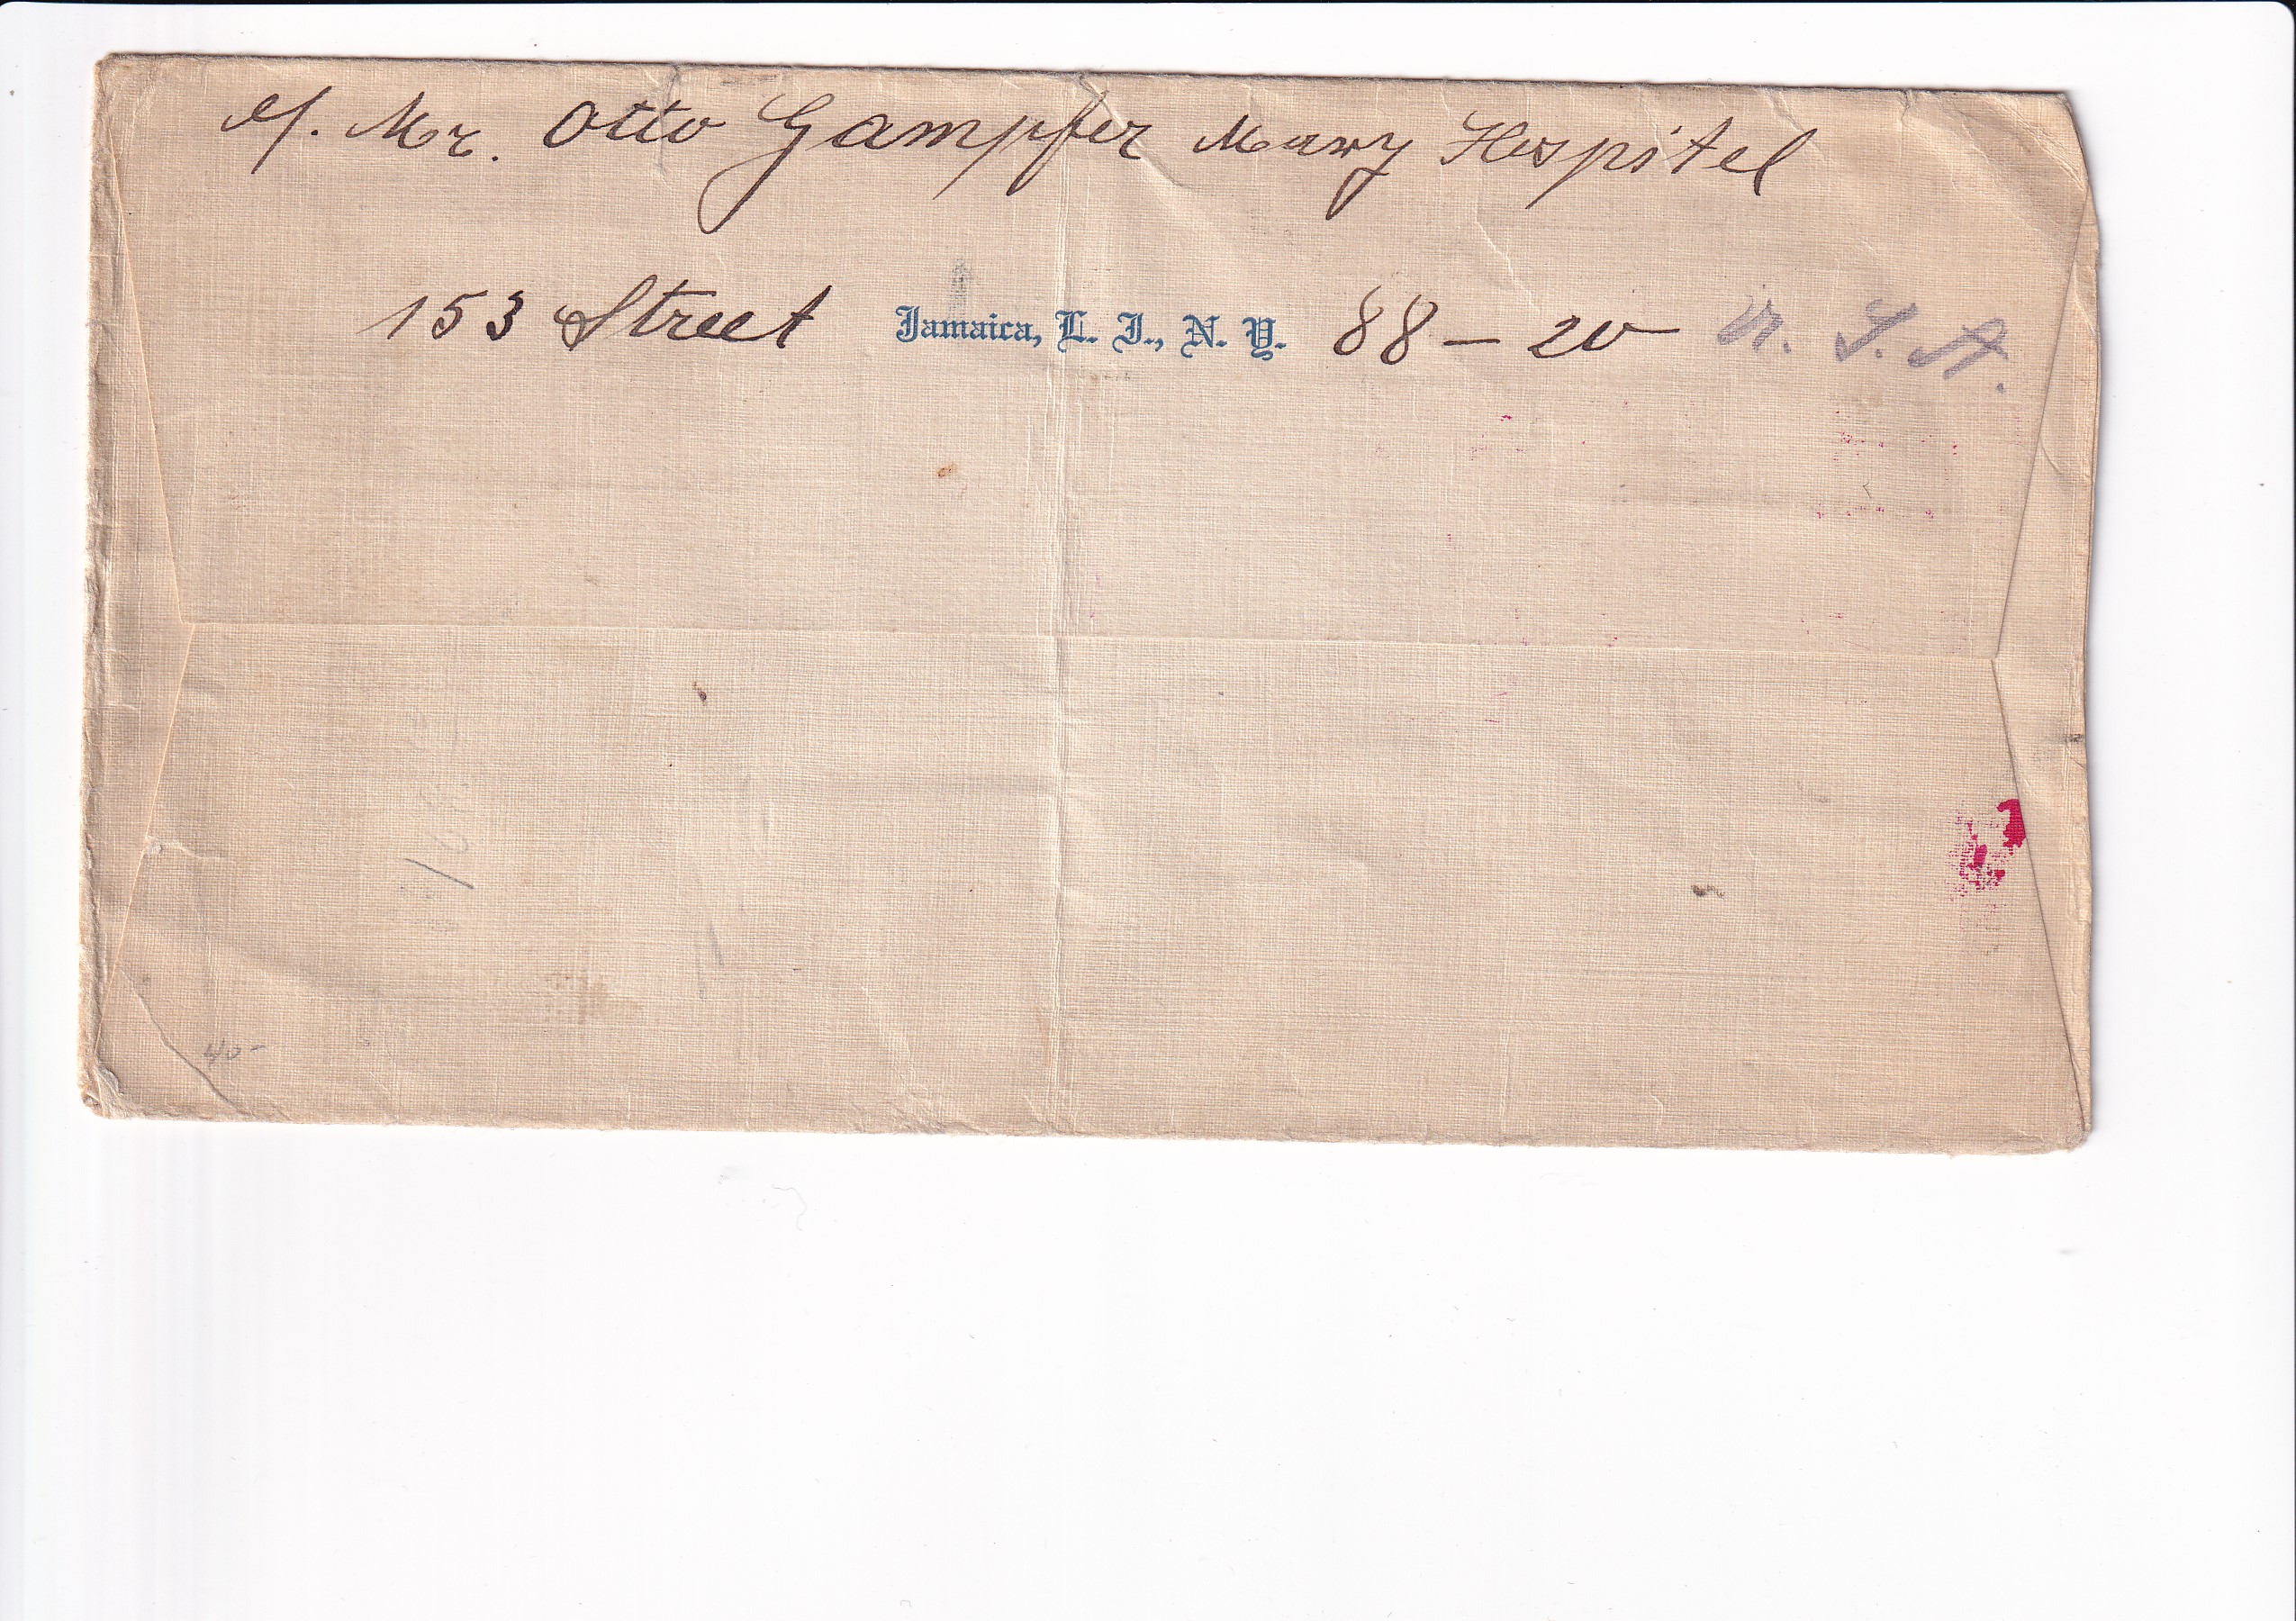 Mr. Otto Gampfer Mary Hospitel
153 Street Jamaica, L. I., N. Y. 88 - 20 U. S. A.
40 -